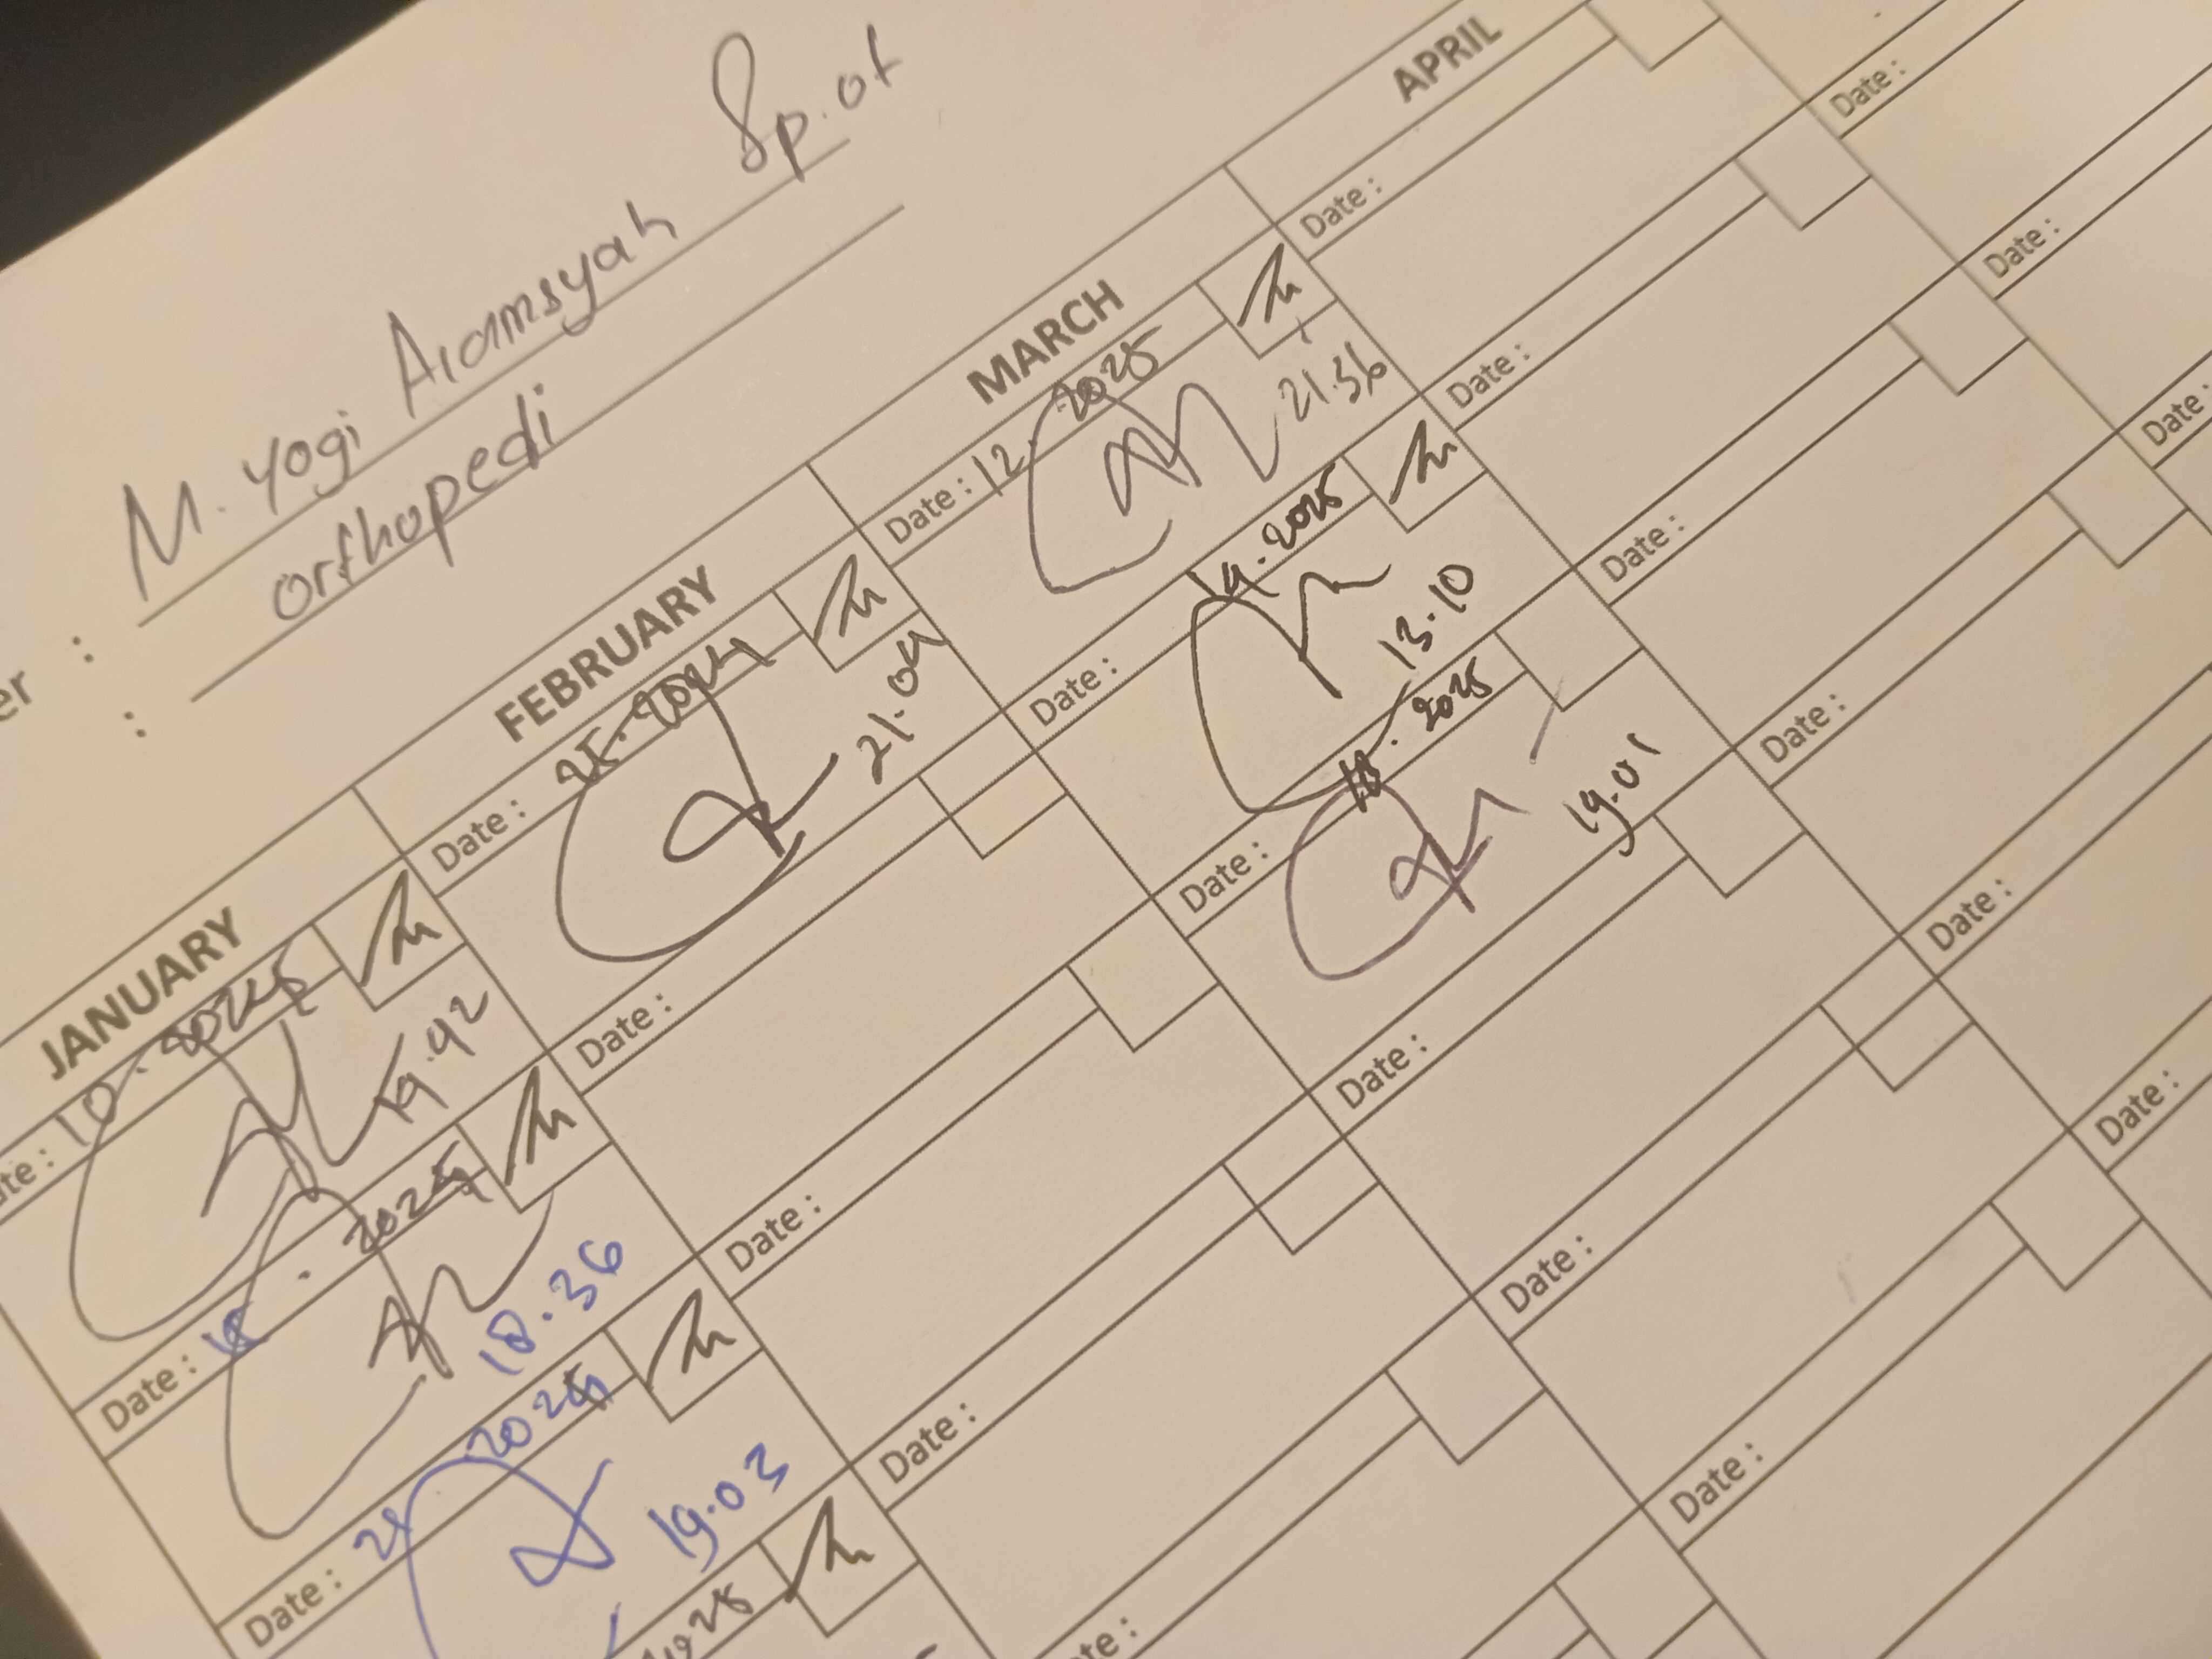 M. Yogi Alamsyah Sp.ot
er :
Orthopedi
:
JANUARY
FEBRUARY
MARCH
APRIL
te : 10 . 2025
19.42
Date : 18 . 2025
18.36
Date : 2025
19.03
2025
Date : 25.2024
21.04
Date :
Date :
Date :
te :
Date : 12. 2025
21.36
Date : 14.2025
13.10
Date : 18. 2025
19.01
Date :
Date :
Date :
Date :
Date :
Date :
Date :
Date :
Date :
Date :
Date :
Date :